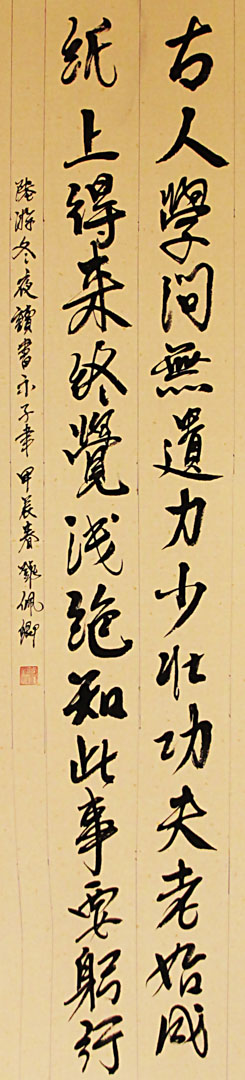 古人學问無遺力少壮功夫老始成
纸上得来终覺浅绝知此事要躬行
陸游冬夜讀書示子聿甲辰春 佩卿